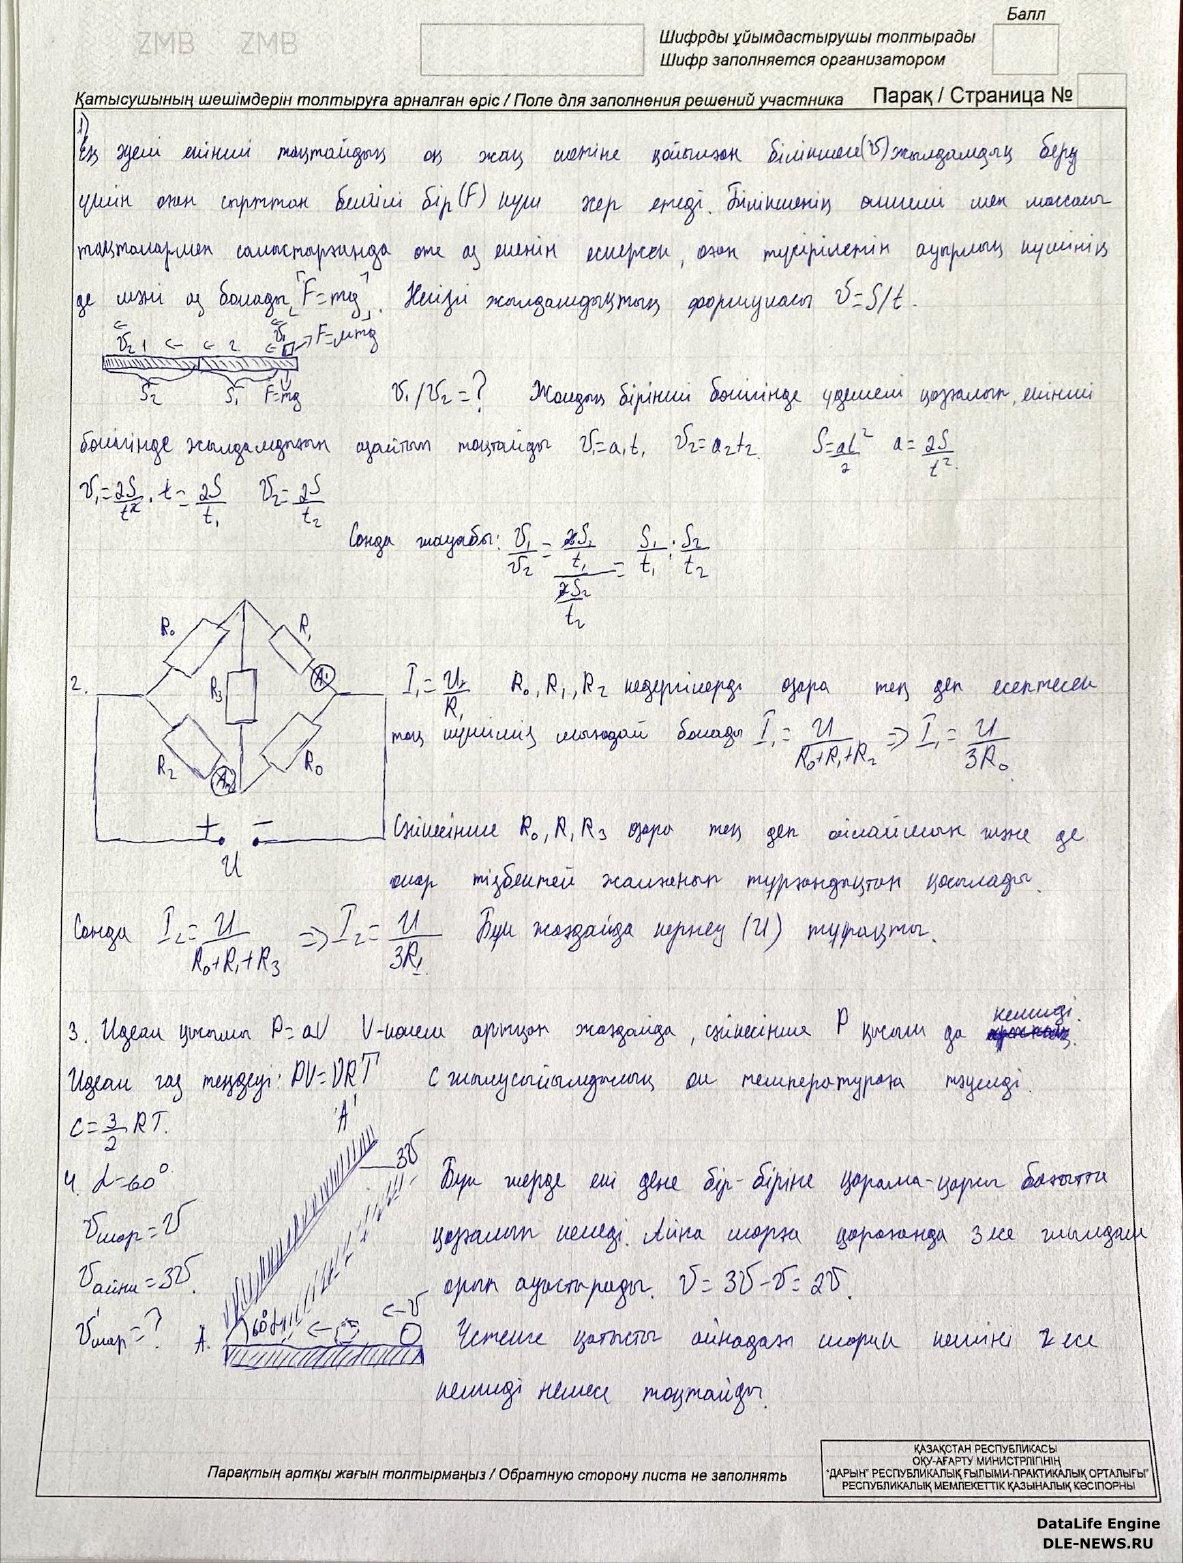 ZMB ZMB
Балл
Шифрды ұйымдастырушы толтырады
Шифр заполняется организатором
Қатысушының шешімдерін толтыруға арналған өріс / Поле для заполнения решений участника Парақ / Страница №
1)
Ең әуелі екінші тақтайдың оң жақ шетіне қойылған білікшеге (υ) жылдамдық беру
үшін оған сырттан белгілі бір (F) күш әсер етеді. Білікшенің өлшемі мен массасы
тақталармен салыстырғанда өте аз екенін ескерсек, оған түсірілетін ауырлық күшінің
де мәні аз болады "F=mg". Негізгі жылдамдықтың формуласы υ=S/t.
υ₂ 1 ← ← 2 υ₁ F=μmg
S₂ S₁ F=mg
υ₁/υ₂=? Жолдың бірінші бөлігінде үдемелі қозғалып, екінші
бөлігінде жылдамдығын азайтып тоқтайды υ₁=a₁t₁ υ₂=a₂t₂ S=at²/2 a=2S/t².
υ₁=2S/t²·t=2S/t₁ υ₂=2S/t₂
Сонда жауабы: υ₁/υ₂=(2S₂/t₁)/(2S₂/t₂)=S₁/t₁:S₂/t₂
R₀ R₁
A₁
R₃
2. I₁=U/R₁ R₀, R₁, R₂ кедергілерді өзара тең деп есептесек
ток күшіміз мынадай болады I₁=U/(R₀+R₁+R₂) => I₁=U/3R₀.
R₂ A₂ R₀
+ −
U
Сәйкесінше R₀, R₁, R₃ өзара тең деп ойлаймын және де
олар тізбектей жалғанып тұрғандықтан қосылады.
Сонда I₂=U/(R₀+R₁+R₃) => I₂=U/3R₁. Бұл жағдайда кернеу (U) тұрақты.
3. Идеал қысымы P=aV V-көлем артқан жағдайда, сәйкесінше P қысым да кемиді.
Идеал газ теңдеуі: PV=νRT C жылусыйымдылық ол температураға тәуелді.
C=3/2 RT.
'A'
4. α=60° 3υ
υшар=υ
υайна=3υ.
υшар=?
60° ←υ
A.
Бұл жерде екі дене бір-біріне қарама-қарсы бағытта
қозғалып келеді. Айна шарға қарағанда 3 есе жылдам
орын ауыстырады. υ=3υ-υ=2υ.
Үстелге қатысты айнадағы шардың кескіні 2 есе
кемиді немесе тоқтайды.
Парақтың артқы жағын толтырмаңыз / Обратную сторону листа не заполнять
ҚАЗАҚСТАН РЕСПУБЛИКАСЫ
ОҚУ-АҒАРТУ МИНИСТРЛІГІНІҢ
"ДАРЫН" РЕСПУБЛИКАЛЫҚ ҒЫЛЫМИ-ПРАКТИКАЛЫҚ ОРТАЛЫҒЫ"
РЕСПУБЛИКАЛЫҚ МЕМЛЕКЕТТІК ҚАЗЫНАЛЫҚ КӘСІПОРНЫ
DataLife Engine
DLE-NEWS.RU